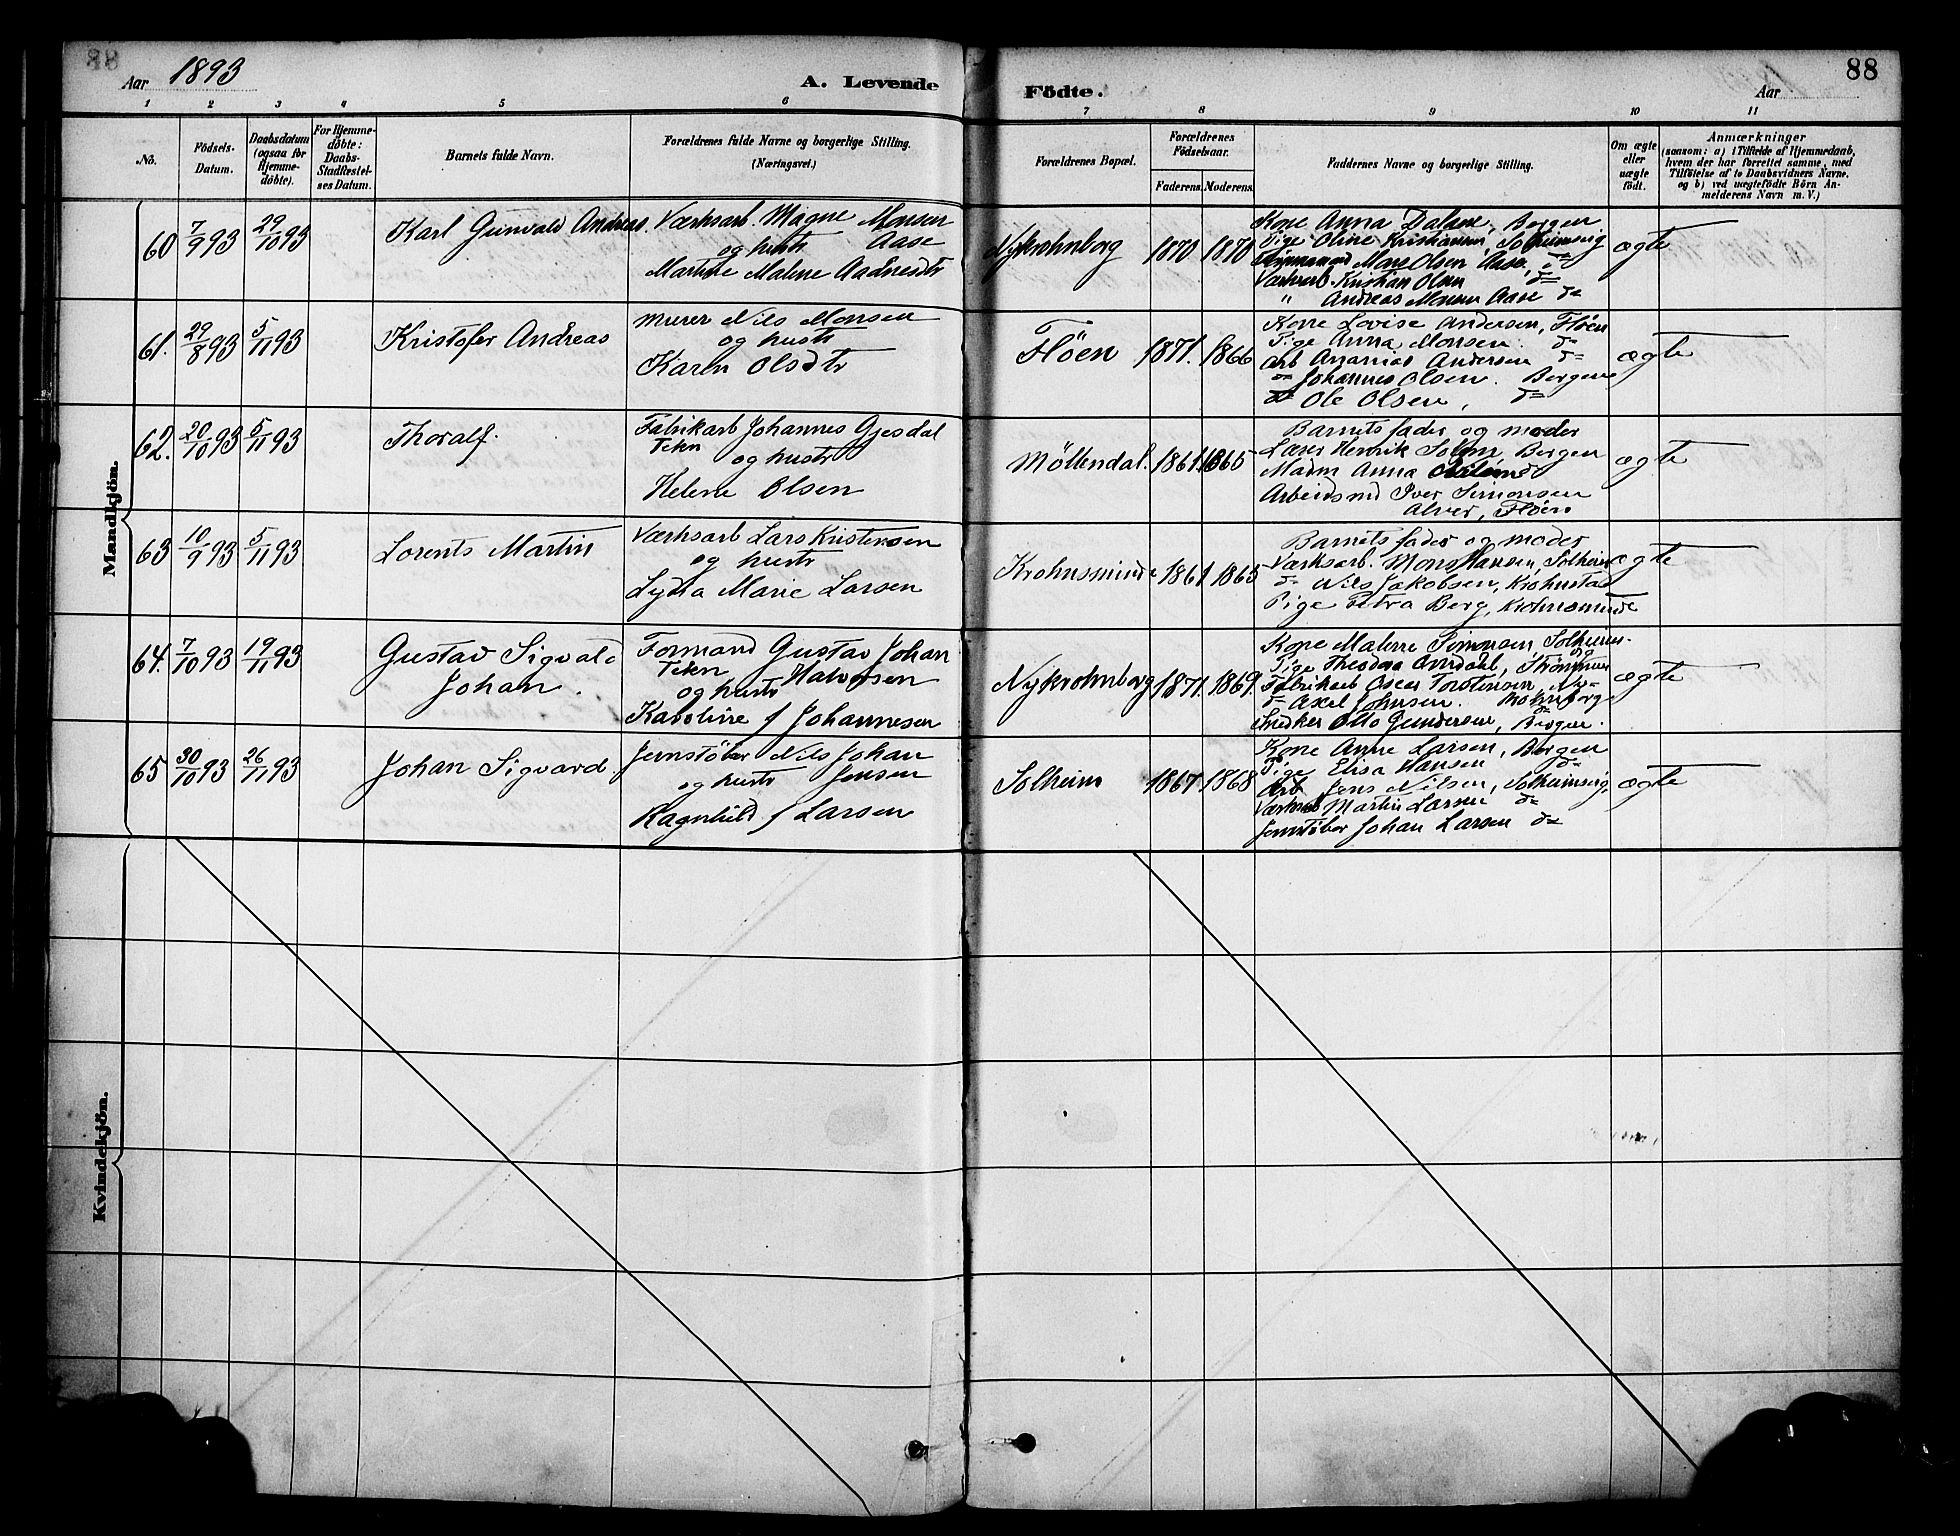 88
Aar 1893
A. Levende
Födte.
Aar
88
1 2 3 4 5 6 7 8 9 10 11
No.
Födsels-
Datum.
Daabsdatum
(ogsaa for
Hjemme-
döbte).
For Hjemme-
döbte:
Daabs-
Stadfæstel-
ses Datum.
Barnets fulde Navn.
Forældrenes fulde Navne og borgerlige Stilling.
(Næringsvei.)
Forældrenes Bopæl.
Forældrenes
Födselsaar.
Faderens. Moderens.
Faddernes Navne og borgerlige Stilling.
Om ægte
eller
uægte
födt.
Anmærkninger
(saasom: a) i Tilfælde af Hjemmedaab,
hvem der har forrettet samme, med
Tilföielse af to Daabsvidners Navne.
og b) ved uægtefödte Börn An-
melderens Navn m. V.)
Mandkjön.
60 7/9 93 29/10 93
Karl Gunvald Andreas
Værksarb. Magne Monsen
og hustr Aase
Martine Malene Aadnesdtr
Nykrohnborg 1870 1870
Kone Anna Dalene, Bergen
Pige Oline Kristiansen, Solheimsvig
Mons Olsen Aase, d=
Værksarb. Kristian Olsen d=
" Andreas Monsen Aase d=
ægte
61. 29/8 93 5/11 93
Kristofer Andreas
Murer Nils Monsen
og hustr
Karen Olsdtr
Flöen 1871. 1866
Kone Lovise Andersen, Flöen
Pige Anna Monsen. d=
Arb Ananias Andersen d=
d= Johannes Olsen. Bergen
d= Ole Olsen, d=
ægte
62. 20/10 93 5/11 93
Thoralf.
Fabrikarb Johannes Gjesdal
Tekn og hustr
Helene Olsen
Möllendal. 1861. 1865
Barnets fader og moder
Læser Henrik Solem, Bergen
Madm Anna
Arbeidsmd Iver Simonsen
Alver, Flöen
ægte
63 10/9 93 5/11 93
Lorents Martin
Værksarb Lars Kristensen
og hustr
Lydia Marie Larsen
Krohnsminde 1861 1865
Barnets fader og moder
Værksarb. Mons Hansen, Solheim
d= Nils Jakobsen, Krohnstad
Pige Petra Berg, Krohnsminde
ægte
64. 7/10 93 19/11 93
Gustav Sigvald
Johan.
Formand Gustav Johan
Tekn og hustr Halvorsen
Karoline f Johannesen
Nykrohnborg 1871. 1869.
Kone Malene Simonsen, Solheims-
Pige Theodora vig
Fabrikarb Oscar Torstensen, Ny-
d= Axel Johnsen. krohnborg
Snedker Otto Gundersen, Bergen.
ægte
65 30/10 93 26/11 93
Johan Sigvard.
Jernstöber Nils Johan
og hustr Jensen
Ragnhild f Larsen
Solheim 1867 1868
Kone Anne Larsen, Bergen
Pige Elisa Hansen d=
Arb Jens Nilsen, Solheimsvig,
Værksarb Martin Larsen d=
Jernstöber Johan Larsen d=
ægte
Kvindekjön.